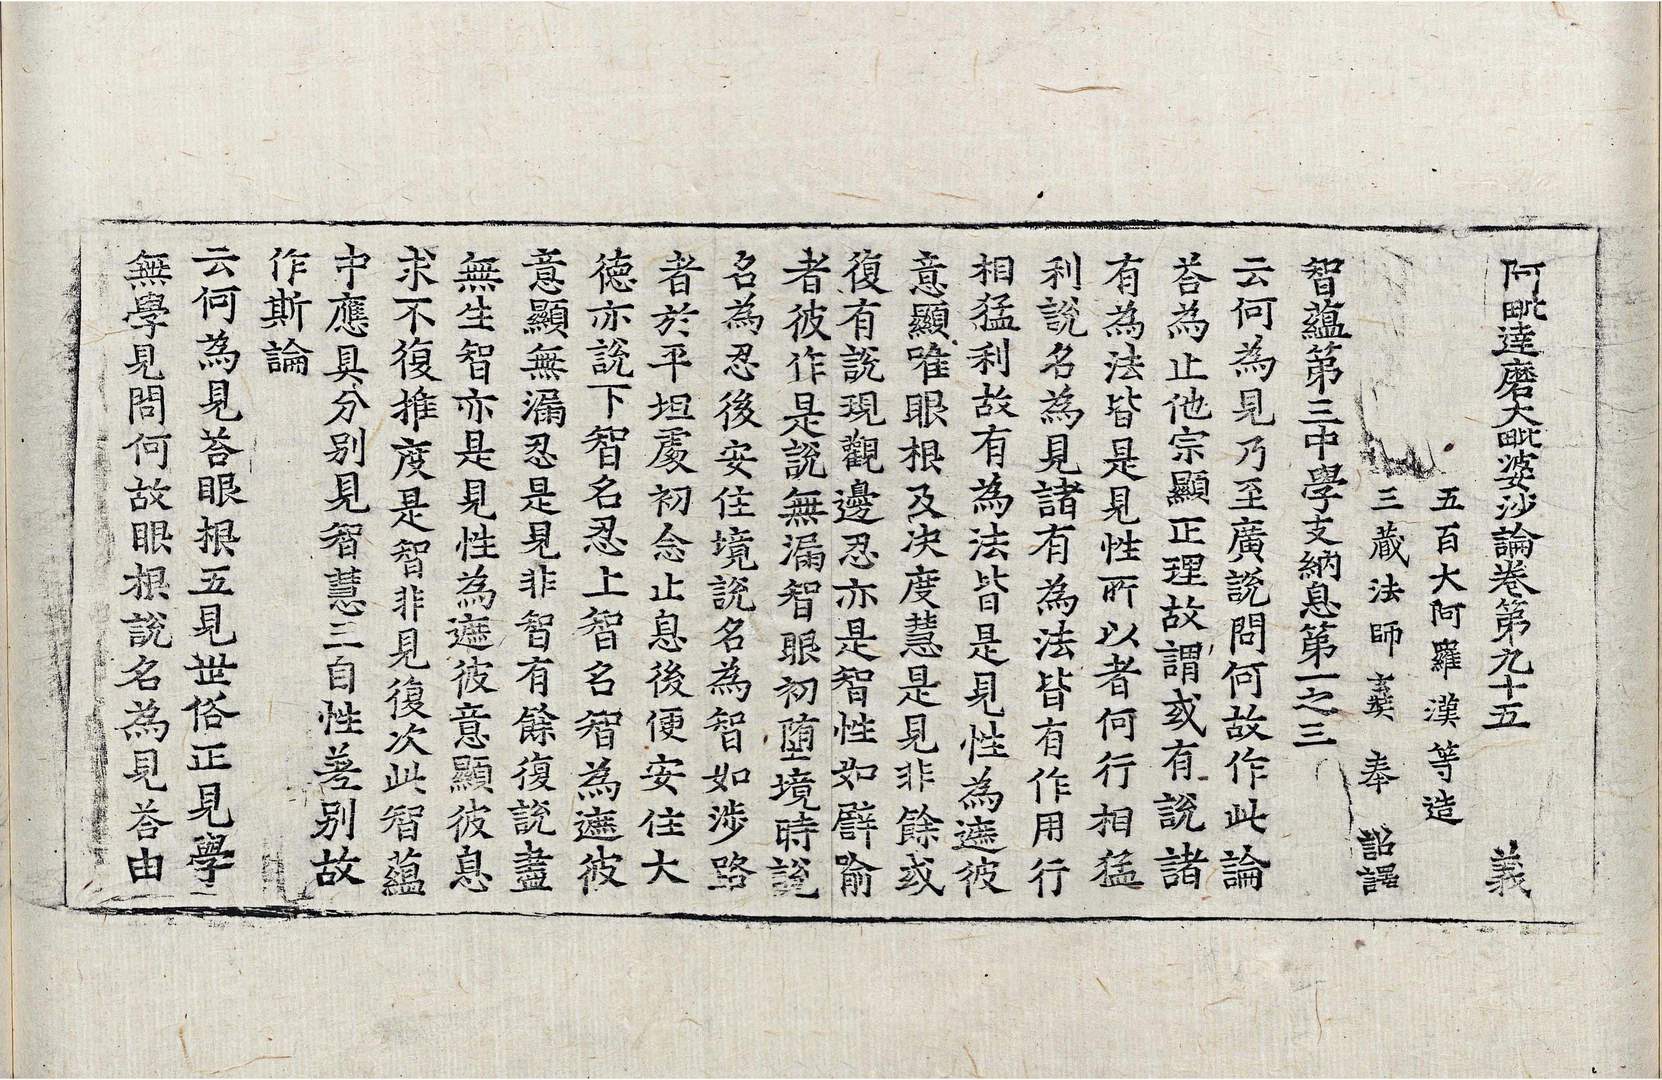 阿毗達磨大毗婆沙論卷第九十五　義
五百大阿羅漢等造
三藏法師　奉　詔譯
智蘊第三中學支納息第一之三
云何為見乃至廣說問何故作此論
荅為止他宗顯正理故謂或有說諸
有為法皆是見性所以者何行相猛
利說名為見諸有為法皆有作用行
相猛利故有為法皆是見性為遮彼
意顯唯眼根及決度慧是見非餘或
復有說現觀邊忍亦是智性如譬喻
者彼作是說無漏智眼初墮境時說
名為忍後安住境說名為智如涉路
者於平坦處初念止息後便安住大
德亦說下智名忍上智名智為遮彼
意顯無漏忍是見非智有餘復說盡
無生智亦是見性為遮彼意顯彼息
求不復推度是智非見復次此智蘊
中應具分別見智慧三自性差別故
作斯論
云何為見荅眼根五見世俗正見學
無學見問何故眼根說名為見荅由